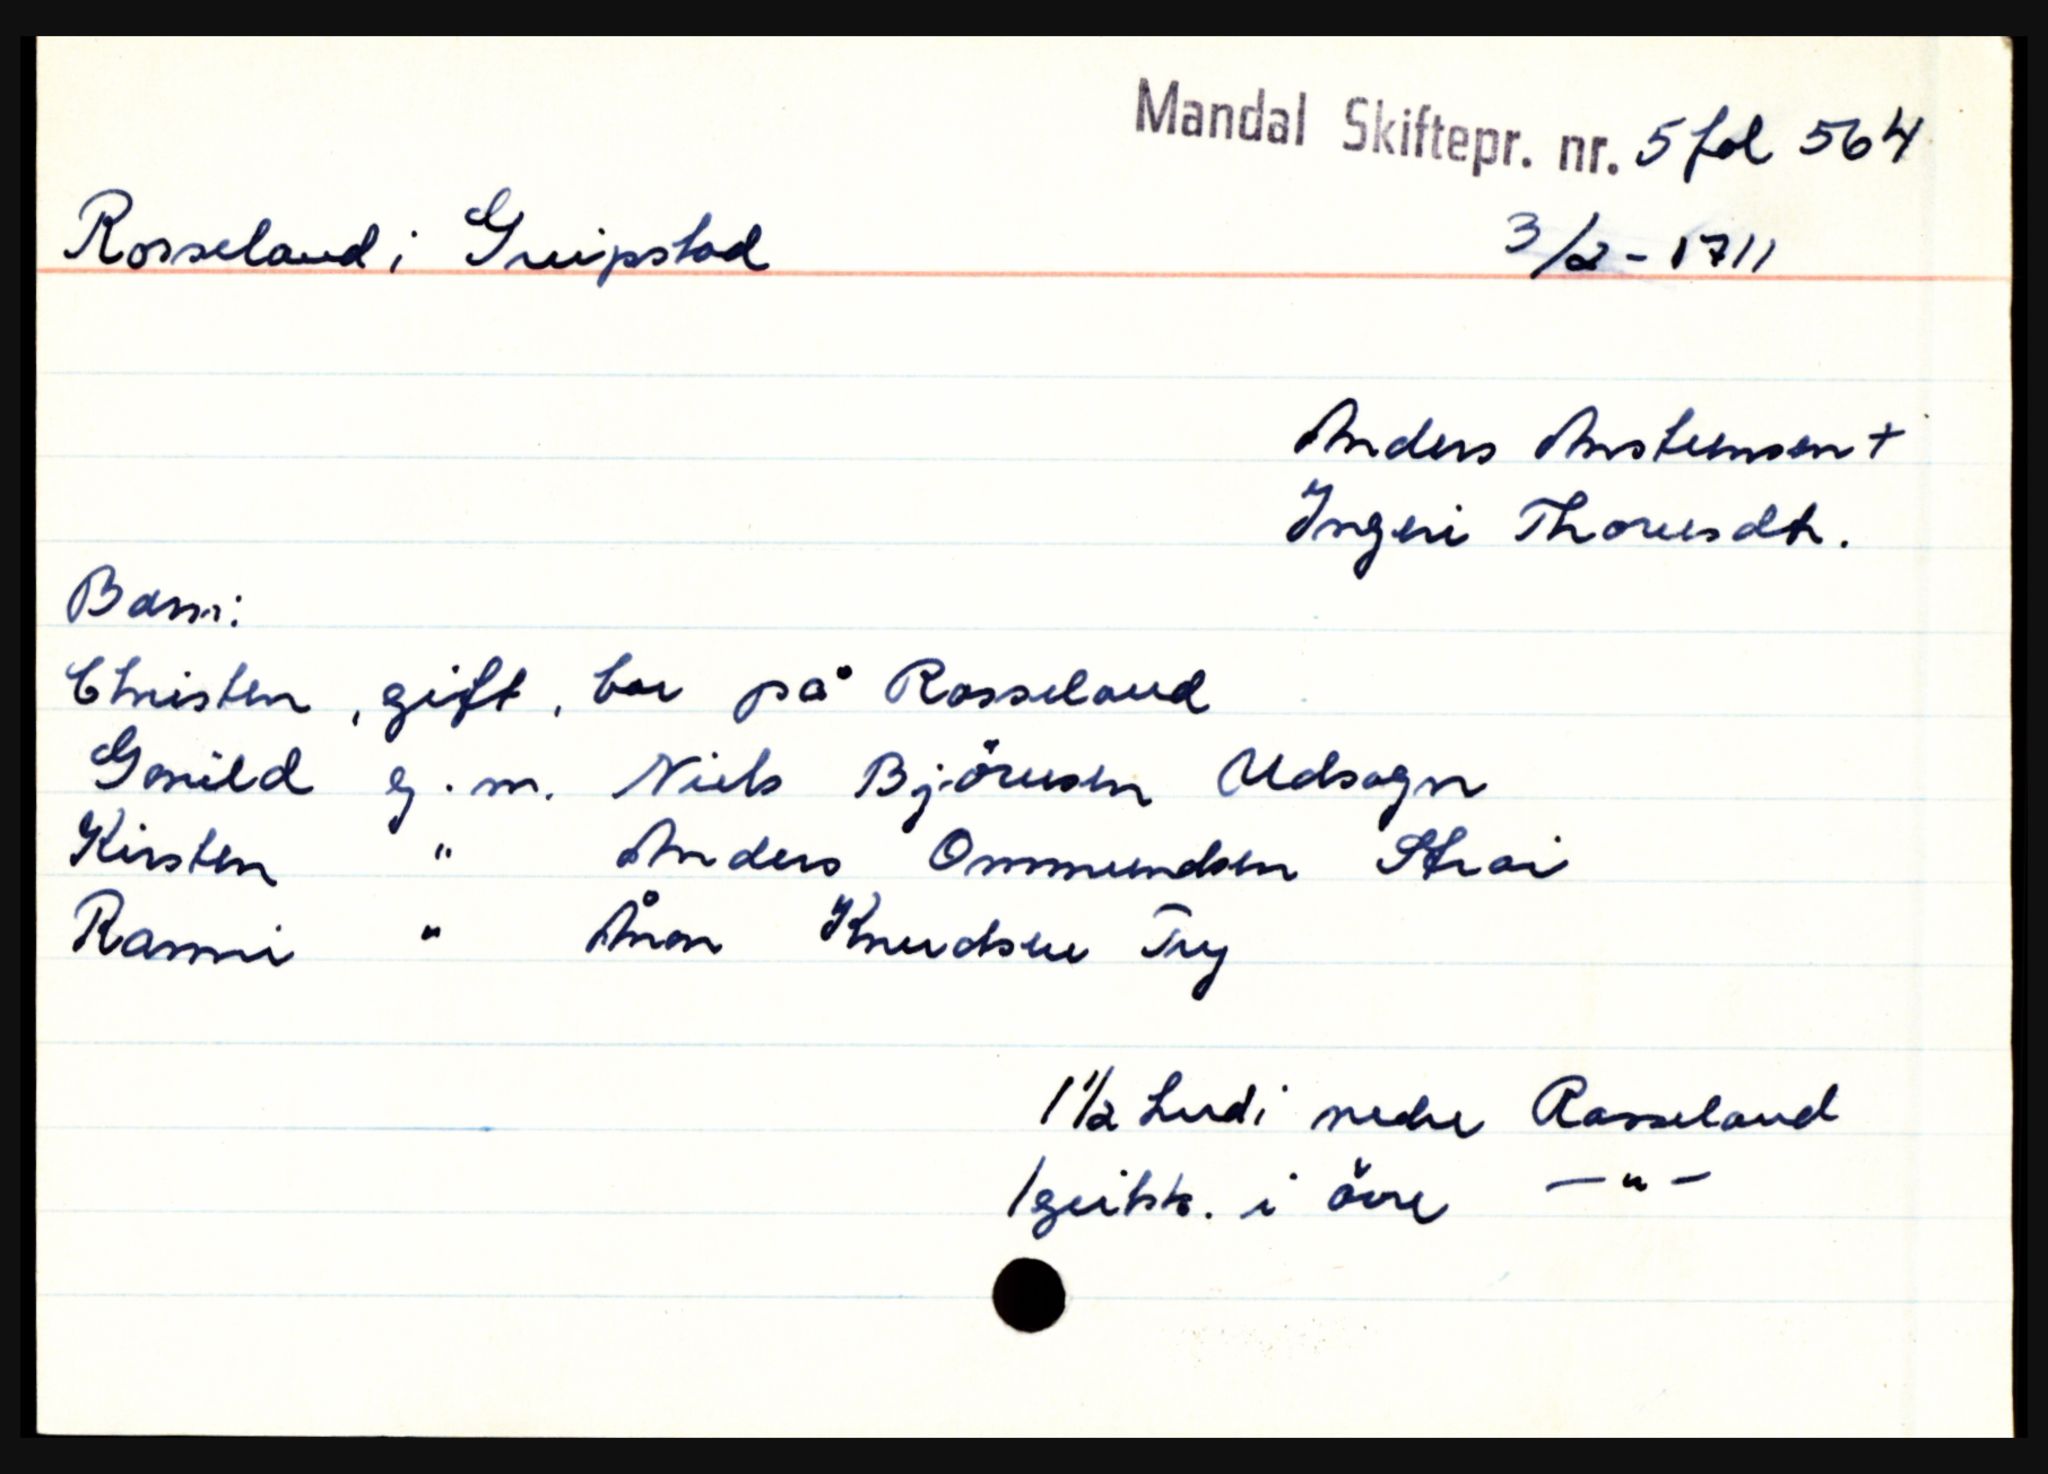 Mandal Skiftepr. nr. 5 fol 564
Rosseland i Greipstad 3/2 - 1711
Anders Anstensen +
Ingeri Thoresdtr.
Barn:
Christen, gift, bor på Rosseland
Gunild g. m. Niels Björnsen Udsogn
Kirsten " Anders Ommundsen Strai
Ranni " Ånon Knudsen Try
1 1/2 hud i nedre Rosseland
1 geitsk. i övre — " —